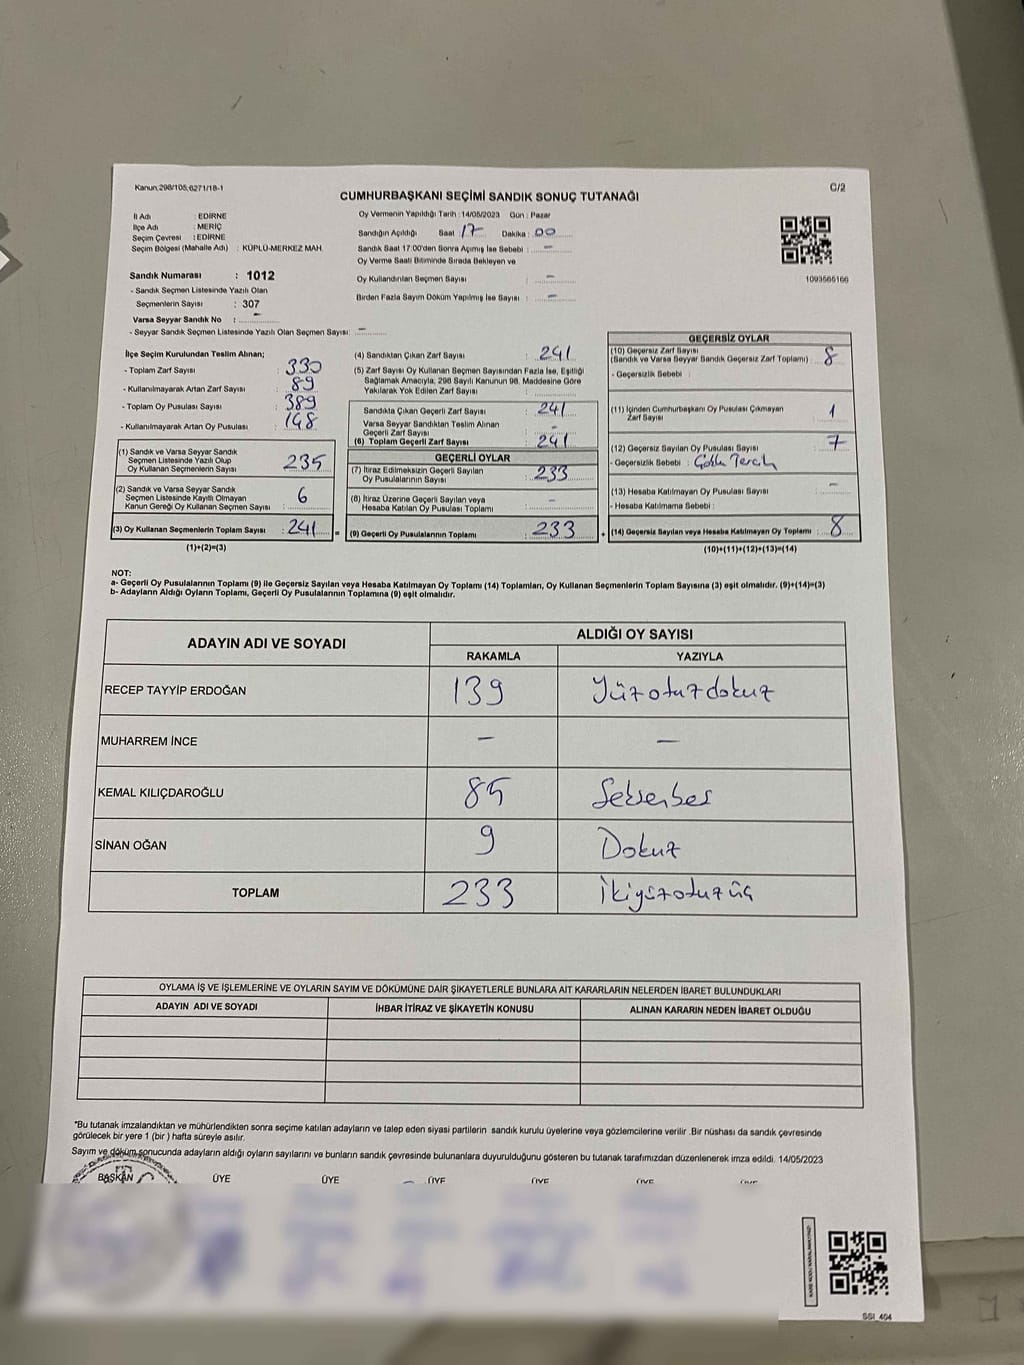 Kanun,298/105,6271/18-1
C/2
CUMHURBAŞKANI SEÇİMİ SANDIK SONUÇ TUTANAĞI
İl Adı : EDİRNE
İlçe Adı : MERİÇ
Seçim Çevresi : EDİRNE
Seçim Bölgesi (Mahalle Adı) : KÜPLÜ-MERKEZ MAH.
Sandık Numarası : 1012
- Sandık Seçmen Listesinde Yazılı Olan
Seçmenlerin Sayısı : 307
Varsa Seyyar Sandık No : -
- Seyyar Sandık Seçmen Listesinde Yazılı Olan Seçmen Sayısı: -
Oy Vermenin Yapıldığı Tarih : 14/05/2023 Gün : Pazar
Sandığın Açıldığı Saat : 17 Dakika : 00
Sandık Saat 17:00'den Sonra Açımış İse Sebebi : -
Oy Verme Saati Bitiminde Sırada Bekleyen ve
Oy Kullandırılan Seçmen Sayısı : -
Birden Fazla Sayım Döküm Yapılmış İse Sayısı : -
1093565166
İlçe Seçim Kurulundan Teslim Alınan;
- Toplam Zarf Sayısı : 330
- Kullanılmayarak Artan Zarf Sayısı : 89
- Toplam Oy Pusulası Sayısı : 389
- Kullanılmayarak Artan Oy Pusulası : 148
(1) Sandık ve Varsa Seyyar Sandık
Seçmen Listesinde Yazılı Olup
Oy Kullanan Seçmenlerin Sayısı : 235
(2) Sandık ve Varsa Seyyar Sandık
Seçmen Listesinde Kayıtlı Olmayan
Kanun Gereği Oy Kullanan Seçmen Sayısı : 6
(3) Oy Kullanan Seçmenlerin Toplam Sayısı : 241
(1)+(2)=(3)
(4) Sandıktan Çıkan Zarf Sayısı : 241
(5) Zarf Sayısı Oy Kullanan Seçmen Sayısından Fazla İse, Eşitliği
Sağlamak Amacıyla, 298 Sayılı Kanunun 98. Maddesine Göre
Yakılarak Yok Edilen Zarf Sayısı :
Sandıkta Çıkan Geçerli Zarf Sayısı : 241
Varsa Seyyar Sandıktan Teslim Alınan
Geçerli Zarf Sayısı : -
(6) Toplam Geçerli Zarf Sayısı : 241
GEÇERLİ OYLAR
(7) İtiraz Edilmeksizin Geçerli Sayılan
Oy Pusulalarının Sayısı : 233
(8) İtiraz Üzerine Geçerli Sayılan veya
Hesaba Katılan Oy Pusulası Toplamı : -
= (9) Geçerli Oy Pusulalarının Toplamı : 233
GEÇERSİZ OYLAR
(10) Geçersiz Zarf Sayısı
(Sandık ve Varsa Seyyar Sandık Geçersiz Zarf Toplamı) : 8
- Geçersizlik Sebebi :
(11) İçinden Cumhurbaşkanı Oy Pusulası Çıkmayan
Zarf Sayısı : 1
(12) Geçersiz Sayılan Oy Pusulası Sayısı : 7
- Geçersizlik Sebebi :
(13) Hesaba Katılmayan Oy Pusulası Sayısı : -
- Hesaba Katılmama Sebebi :
+ (14) Geçersiz Sayılan veya Hesaba Katılmayan Oy Toplamı : 8
(10)+(11)+(12)+(13)=(14)
NOT:
a- Geçerli Oy Pusulalarının Toplamı (9) ile Geçersiz Sayılan veya Hesaba Katılmayan Oy Toplamı (14) Toplamları, Oy Kullanan Seçmenlerin Toplam Sayısına (3) eşit olmalıdır. (9)+(14)=(3)
b- Adayların Aldığı Oyların Toplamı, Geçerli Oy Pusulalarının Toplamına (9) eşit olmalıdır.
ADAYIN ADI VE SOYADI
ALDIĞI OY SAYISI
RAKAMLA YAZIYLA
RECEP TAYYİP ERDOĞAN 139 Yüzotuzdokuz
MUHARREM İNCE - -
KEMAL KILIÇDAROĞLU 85 Seksenbes
SİNAN OĞAN 9 Dokuz
TOPLAM 233 İkiyüzotuzüç
OYLAMA İŞ VE İŞLEMLERİNE VE OYLARIN SAYIM VE DÖKÜMÜNE DAİR ŞİKAYETLERLE BUNLARA AİT KARARLARIN NELERDEN İBARET BULUNDUKLARI
ADAYIN ADI VE SOYADI İHBAR İTİRAZ VE ŞİKAYETİN KONUSU ALINAN KARARIN NEDEN İBARET OLDUĞU
*Bu tutanak imzalandıktan ve mühürlendikten sonra seçime katılan adayların ve talep eden siyasi partilerin sandık kurulu üyelerine veya gözlemcilerine verilir .Bir nüshası da sandık çevresinde
görülecek bir yere 1 (bir ) hafta süreyle asılır.
Sayım ve döküm sonucunda adayların aldığı oyların sayılarını ve bunların sandık çevresinde bulunanlara duyurulduğunu gösteren bu tutanak tarafımızdan düzenlenerek imza edildi. 14/05/2023
BAŞKAN ÜYE ÜYE ÜYE ÜYE ÜYE ÜYE
SSI_404